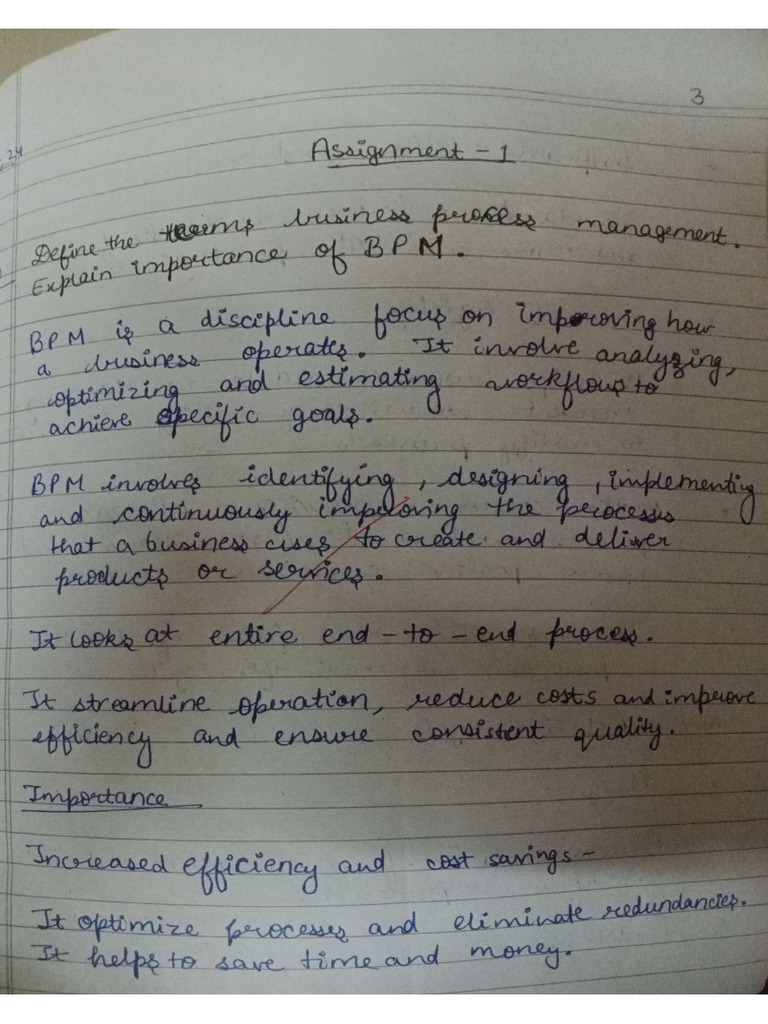 3
24
Assignment - 1
Define the terms business process management.
Explain importance of BPM.
BPM is a discipline focus on improving how
a business operates. It involve analyzing,
optimizing and estimating workflows to
achieve specific goals.
BPM involves identifying, designing, implementing
and continuously improving the processes
that a business uses to create and deliver
products or services.
It looks at entire end-to-end process.
It streamline operation, reduce costs and improve
efficiency and ensure consistent quality.
Importance
Increased efficiency and cost savings -
It optimize processes and eliminate redundancies.
It helps to save time and money.